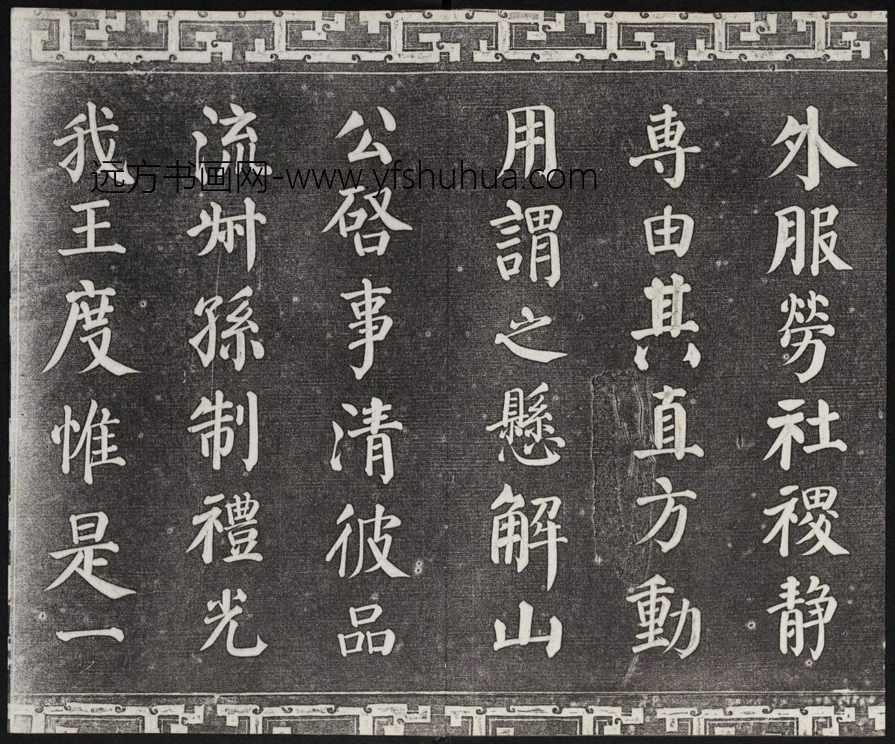 外服勞社稷静
専由其直方動
用謂之懸解山
公啓事清彼品
流叔孫制禮光
我王度惟是一
远方书画网-www.yfshuhua.com